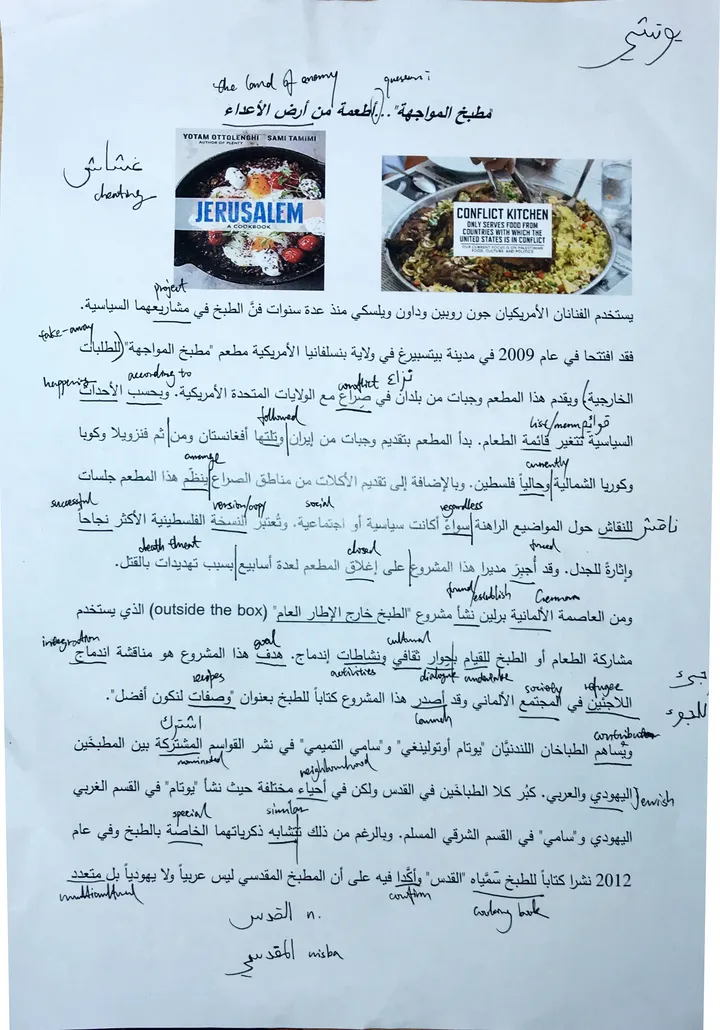 يوتشي
the land of enemy
"مطبخ المواجهة"...أطعمة من أرض الأعداء
غشاش
cheating
YOTAM OTTOLENGHI SAMI TAMIMI
AUTHOR OF PLENTY
JERUSALEM
A COOKBOOK
CONFLICT KITCHEN
ONLY SERVES FOOD FROM
COUNTRIES WITH WHICH THE
UNITED STATES IS IN CONFLICT
YOUR CURRENT FOCUS IS ON PALESTINIAN
FOOD, CULTURE, AND POLITICS
project
يستخدم الفنانان الأمريكيان جون روبين وداون ويلسكي منذ عدة سنوات فنَّ الطبخ في مشاريعهما السياسية.
take-away
فقد افتتحا في عام 2009 في مدينة بيتسبيرغ في ولاية بنسلفانيا الأمريكية مطعم "مطبخ المواجهة" (للطلبات
happening according to conflict نزاع
الخارجية) ويقدم هذا المطعم وجبات من بلدان في صِراع مع الولايات المتحدة الأمريكية. وبحسب الأحداث
followed list/menu قوائم
السياسية تتغير قائمة الطعام. بدأ المطعم بتقديم وجبات من إيران وتلتها أفغانستان ومن ثم فنزويلا وكوبا
arrange currently
وكوريا الشمالية وحالياً فلسطين. وبالإضافة إلى تقديم الأكلات من مناطق الصراع ينظّم هذا المطعم جلسات
successful version/copy social regardless
ناقش
للنقاش حول المواضيع الراهنة سواءً أكانت سياسية أو اجتماعية. وتُعتبر النسخة الفلسطينية الأكثر نجاحاً
death threat closed
وإثارةً للجدل. وقد أُجبِرَ مديرا هذا المشروع على إغلاق المطعم لعدة أسابيع بسبب تهديدات بالقتل.
found/establish German
ومن العاصمة الألمانية برلين نشأ مشروع "الطبخ خارج الإطار العام" (outside the box) الذي يستخدم
integration goal cultural
مشاركة الطعام أو الطبخ للقيام بحوار ثقافي ونشاطات إندماج. هدف هذا المشروع هو مناقشة اندماج
recipes activities dialogue undertake society refugee
اللاجئين في المجتمع الألماني وقد أصدر هذا المشروع كتاباً للطبخ بعنوان "وصفات لنكون أفضل".
للجوء
launch
اشترك
contribution
ويُساهم الطباخان اللندنيَّان "يوتام أوتولينغي" و"سامي التميمي" في نشر القواسم المشتركة بين المطبخَين
nominated neighbourhood
اليهودي والعربي. كبُر كلا الطباخَين في القدس ولكن في أحياء مختلفة حيث نشأ "يوتام" في القسم الغربي
Jewish
special similar
اليهودي و"سامي" في القسم الشرقي المسلم. وبالرغم من ذلك تتشابه ذكرياتهما الخاصّة بالطبخ وفي عام
2012 نشرا كتاباً للطبخ سمَّياه "القدس" وأكَّدا فيه على أن المطبخ المقدسي ليس عربياً ولا يهودياً بل متعدد
multicultural confirm cooking book
القدس n.
المقدسي nisba